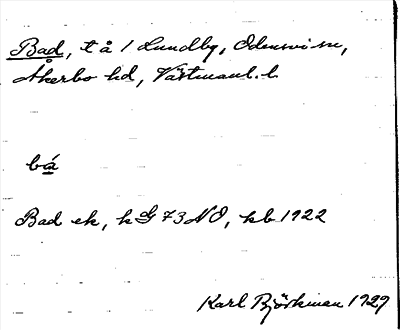 Bad, t å 1 Lundby, Odensvi sn,
Åkerbo hd, Västmanl. l.
bá
Bad ek, k G 73 NO, kb 1922
Karl Björkman 1929